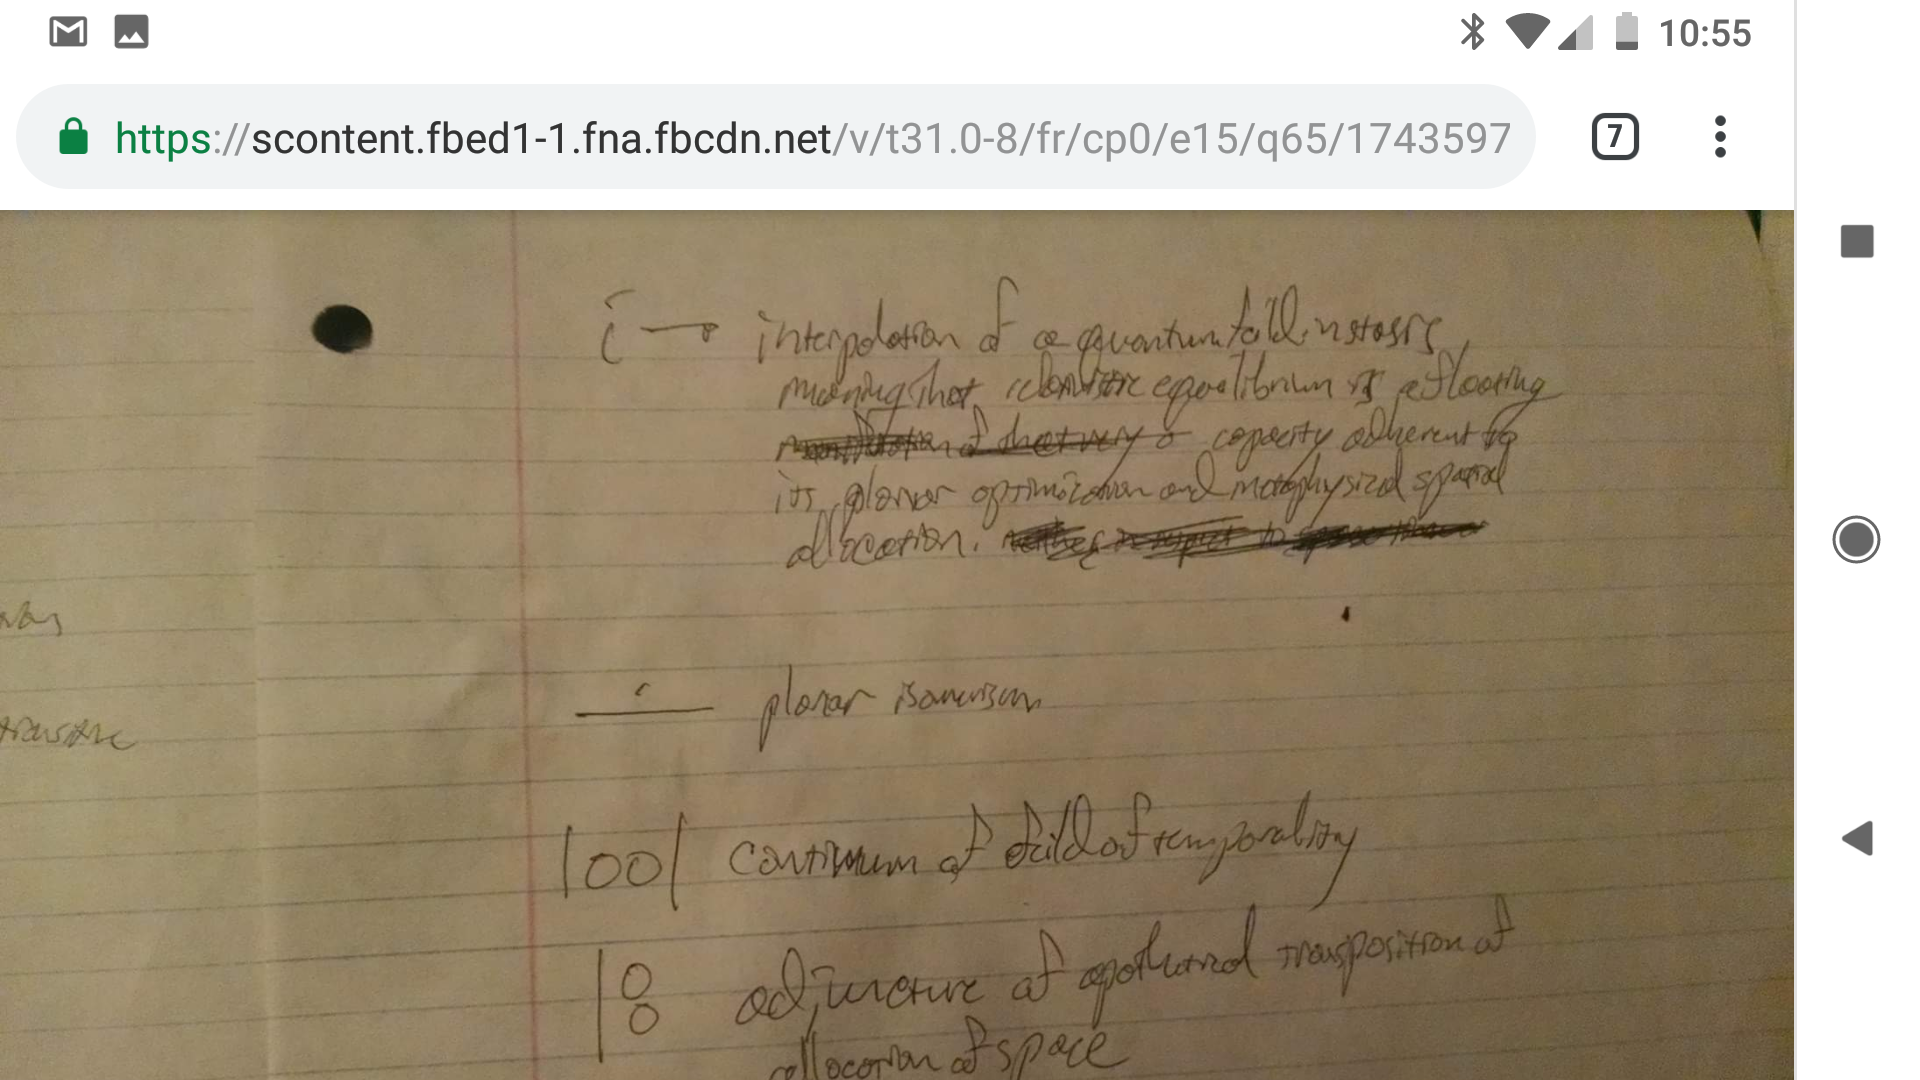 10:55
https://scontent.fbed1-1.fna.fbcdn.net/v/t31.0-8/fr/cp0/e15/q65/1743597
7
i → interpolation of a quantum feild in stasis,
meaning that equilibrium is a floating
of that very a capacity adherent to
its planar optimization and metaphysical spatial
allocation. in respect to
planar isomerism
|00| continuum of feild of temporality
|8 adjuncture of transposition of
allocation of space